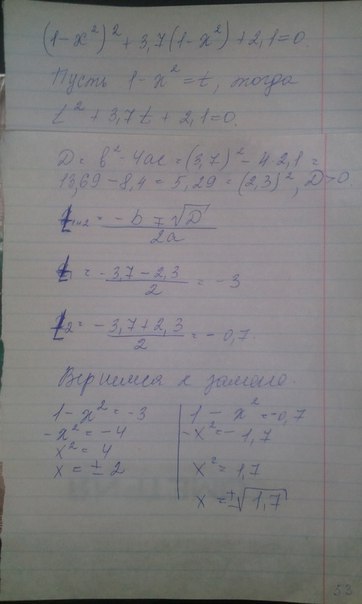 (1-x²)² + 3,7(1-x²) + 2,1=0.
Пусть 1-x² = t, тогда
t² + 3,7t + 2,1=0.
D = b² - 4ac = (3,7)² - 4·2,1 =
13,69 - 8,4 = 5,29 = (2,3)², D>0
t₁,₂ = (-b ∓ √D) / 2a
t₁ = (-3,7-2,3) / 2 = -3
t₂ = (-3,7+2,3) / 2 = -0,7.
Вернемся к
1-x² = -3
-x² = -4
x² = 4
x = ±2
1-x² = -0,7
-x² = -1,7
x² = 1,7
x = ±√1,7
53